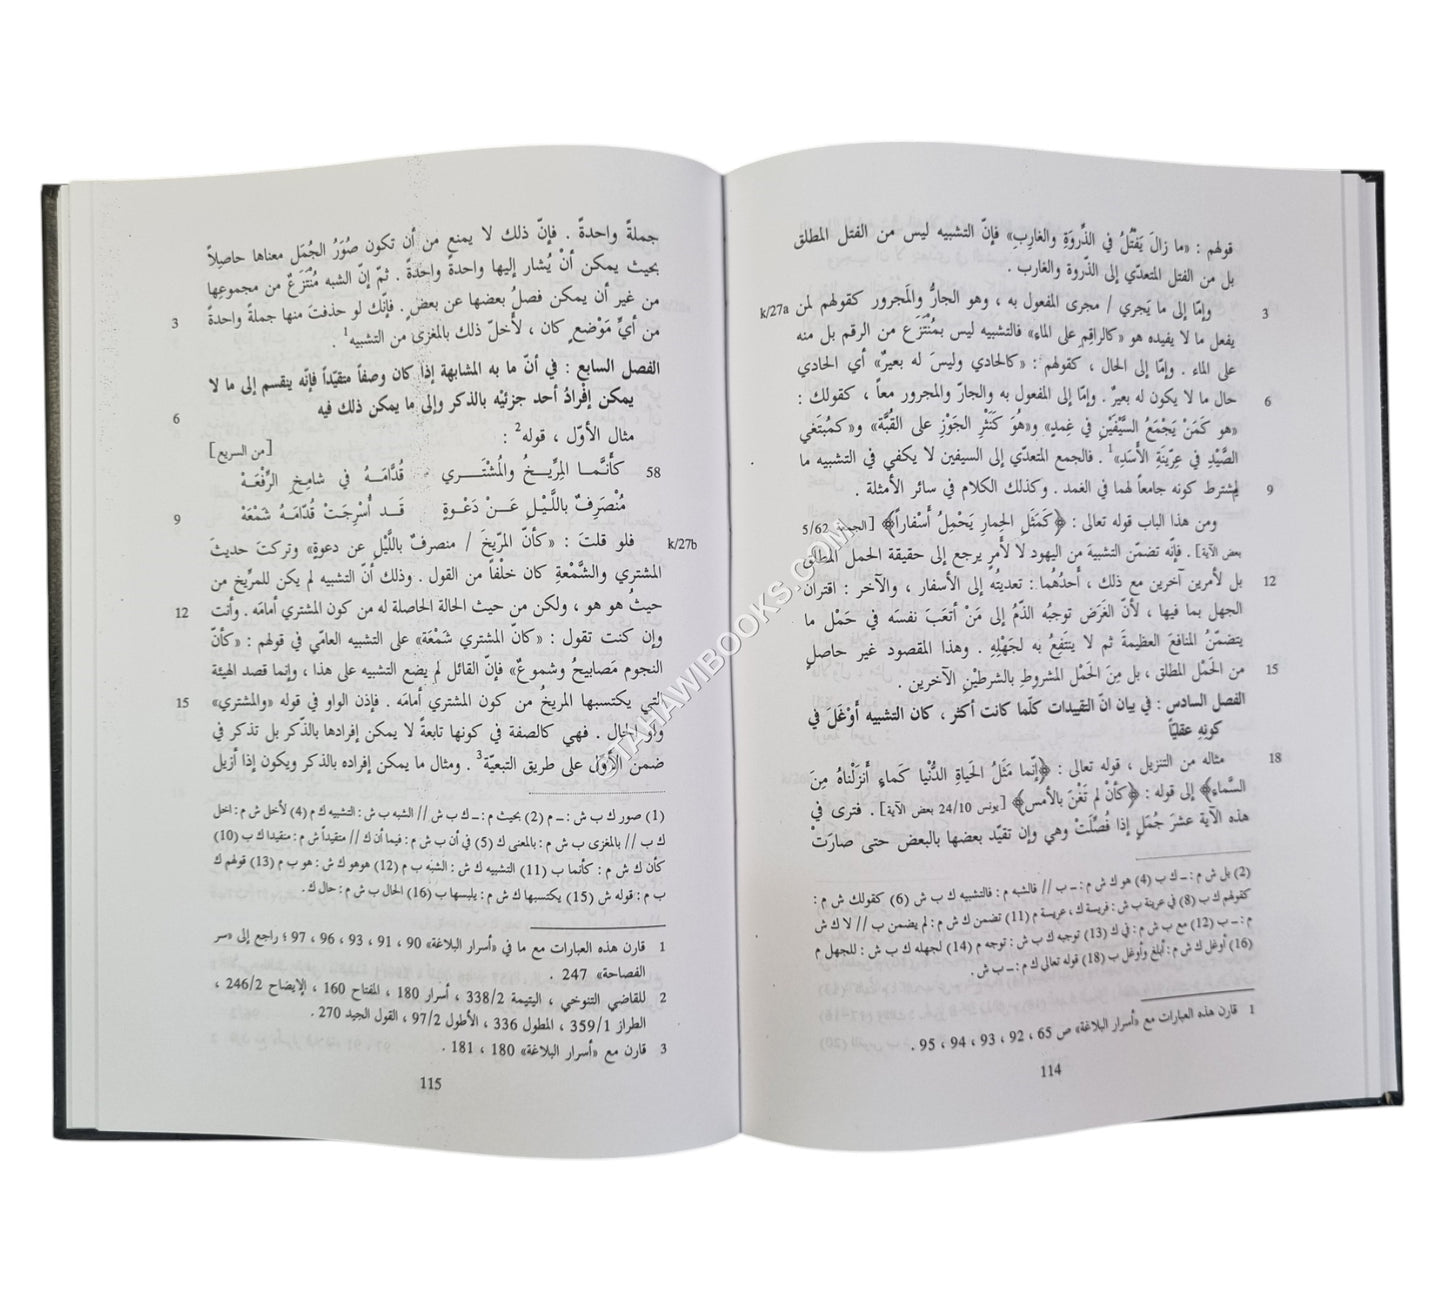 قولهم : «ما زالَ يَفْتُلُ في الذِّروَةِ والغارِب» فإنّ التشبيه ليس من الفتل المطلق
بل من الفتل المتعدّي إلى الذّروة والغارب .
3 وإمّا إلى ما يَجري / مجرى المفعول به ، وهو الجارُّ والمَجرور كقولهم لمن k/27a
يفعل ما لا يفيده هو «كالراقِم على الماءِ» فالتشبيه ليس بمُنْتَزَع من الرقم بل منه
على الماء . وإمّا إلى الحال ، كقولهم : «كالحادي وليسَ له بعيرٌ» أي الحادي
6 حال ما لا يكون له بعيرٌ . وإمّا إلى المفعول به والجارّ والمجرور معاً ، كقولك :
«هو كَمَنْ يَجْمَعُ السَّيْفَيْنِ في غِمدٍ» و«هُوَ كَنَثْرِ الجَوْزِ على القُبَّة» و«كمُبتَغي
الصَّيْدِ في عِرّينَةِ الأَسَدِ»1 . فالجمع المتعدّي إلى السيفين لا يكفي في التشبيه ما
9 لم يشترط كونه جامعاً لهما في الغمد . وكذلك الكلام في سائر الأمثلة .
ومن هذا الباب قوله تعالى : ﴿كَمَثَلِ الحِمارِ يَحْمِلُ أَسْفاراً﴾ [الجمعة 5/62
بعض الآية] . فإنّه تضمّن التشبيهَ من اليهود لا لأَمرٍ يرجع إلى حقيقة الحمل المطلق
12 بل لأمرين آخرين مع ذلك ، أحدُهُما : تعديتُه إلى الأسفار ، والآخر : اقتران
الجهل بما فيها ، لأنّ الغَرَضَ توجبُه الذّمُّ إلى مَنْ أتعَبَ نفسَه في حَمْل ما
يتضمّنُ المنافعَ العظيمةَ ثم لا ينتَفِعُ به لجَهْلِهِ . وهذا المقصود غير حاصلٍ
15 من الحَمْل المطلق ، بل مِنَ الحَمْل المشروطِ بالشرطيْنِ الآخرين .
الفصل السادس : في بيان انّ التقييدات كلّما كانت أكثر ، كان التشبيه أوْغَلَ في
كونِهِ عقليّاً
18 مثاله من التنزيل ، قوله تعالى : ﴿إنّما مَثَلُ الحَياةِ الدُّنْيا كَماءٍ أَنزَلْناهُ مِنَ
السَّماءِ﴾ إلى قوله : ﴿كأنْ لم تَغْنَ بالأمس﴾ [يونس 24/10 بعض الآية] . فترى في
هذه الآية عشرَ جُمَلٍ إذا فُصِّلَتْ وهي وإن تقيّد بعضها بالبعض حتى صارَتْ
(2) بل ش م : ــ ك ب (4) هو ك ش م : ــ ب // فالشبه م : فالتشبيه ك ب ش (6) كقولك ش م :
كقولهم ك ب (8) في عرينة ب ش : فريسة ك ، عريسة م (11) تضمن ك ش م : لم يضمن ب // لا ك ش
م : ــ ب (12) مع ب ش م : في ك (13) توجبه ك ب ش : توجه م (14) لجهله ك ب ش : للجهل م
(16) أوغل ك ش م : أبلغ وأوغل ب (18) قوله تعالى ك م : ــ ب ش .
1 قارن هذه العبارات مع «أسرار البلاغة» ص 65 ، 92 ، 93 ، 94 ، 95 .
114
جملةً واحدةً . فإنّ ذلك لا يمنع من أن تكون صُوَرُ الجُمَل معناها حاصِلاً
بحيث يمكن أنْ يُشار إليها واحدةً واحدةً . ثمّ إنّ الشبه مُنْتَزَعٌ من مجموعِها
3 من غير أن يمكن فصلُ بعضها عن بعضٍ . فإنّك لو حذفتَ منها جملةً واحدةً
من أيِّ مَوْضعٍ كان ، لأَخلّ ذلك بالمغزى من التشبيه1 .
الفصل السابع : في أنّ ما به المشابهة إذا كان وصفاً متقيّداً فإنّه ينقسم إلى ما لا
6 يمكن إفْرادُ أحد جزئيْه بالذكر وإلى ما يمكن ذلك فيه
مثال الأوّل ، قوله2 :
[من السريع]
58 كَأَنَّمـا المِرِّيـخُ والمُشْتَـري قُدّامَــهُ في شامِـخِ الرِّفْعَـهْ
9 مُنْصَرِفٌ باللَّيْـلِ عَــنْ دَعْـوَةٍ قَـد أُسْرِجَتْ قُدّامَـهُ شَمْعَهْ
فلو قلتَ : «كأنّ المرّيخَ / منصرفٌ باللَّيْل عن دعوةٍ» وتركتَ حديثَ k/27b
المشتري والشَّمْعةِ كان خلْفاً من القول . وذلك أنّ التشبيه لم يكن للمرِّيخ من
12 حيثُ هو هو ، ولكن من حيث الحالة الحاصلة له من كون المشتري أمامَه . وأنت
وإن كنت تقول : «كانّ المشتري شَمْعَة» على التشبيه العامّي في قولهم : «كأنّ
النجوم مَصابيحُ وشموعٌ» فإنّ القائل لم يضع التشبيه على هذا ، وإنما قصد الهيئة
15 التي يكتسبها المريخُ من كون المشتري أمامَه . فإذن الواو في قوله «والمشتري»
واو الحال . فهي كالصفة في كونها تابعةً لا يمكن إفرادها بالذّكر بل تذكر في
ضمن الأوّل على طريق التبعيّة3 . ومثال ما يمكن إفراده بالذكر ويكون إذا أزيل
(1) صور ك ب ش : ــ م (2) بحيث م : ــ ك ب ش // الشبه ب ش : التشبيه ك م (4) لأخل ش م : اخل
ك ب // بالمغزى ب ش م : بالمعنى ك (5) في أن ب ش م : فيما أن ك // متقيداً ش م : متقيدا ك ب (10)
كأن ك ش م : كأنما ب (11) التشبيه ك ش : الشبه ب م (12) هوهو ك ش : هو ب م (13) قولهم ك
ب م : قوله ش (15) يكتسبها ك ش م : يلبسها ب (16) الحال ب ش م : حال ك .
1 قارن هذه العبارات مع ما في «أسرار البلاغة» 90 ، 91 ، 93 ، 96 ، 97 ؛ راجع إلى «سر
الفصاحة» 247 .
2 للقاضي التنوخي ، اليتيمة 338/2 ، أسرار 180 ، المفتاح 160 ، الإيضاح 246/2 ،
الطراز 359/1 ، المطول 336 ، الأطول 97/2 ، القول الجيد 270 .
3 قارن مع «أسرار البلاغة» 180 ، 181 .
115
TAHAWIBOOKS.COM